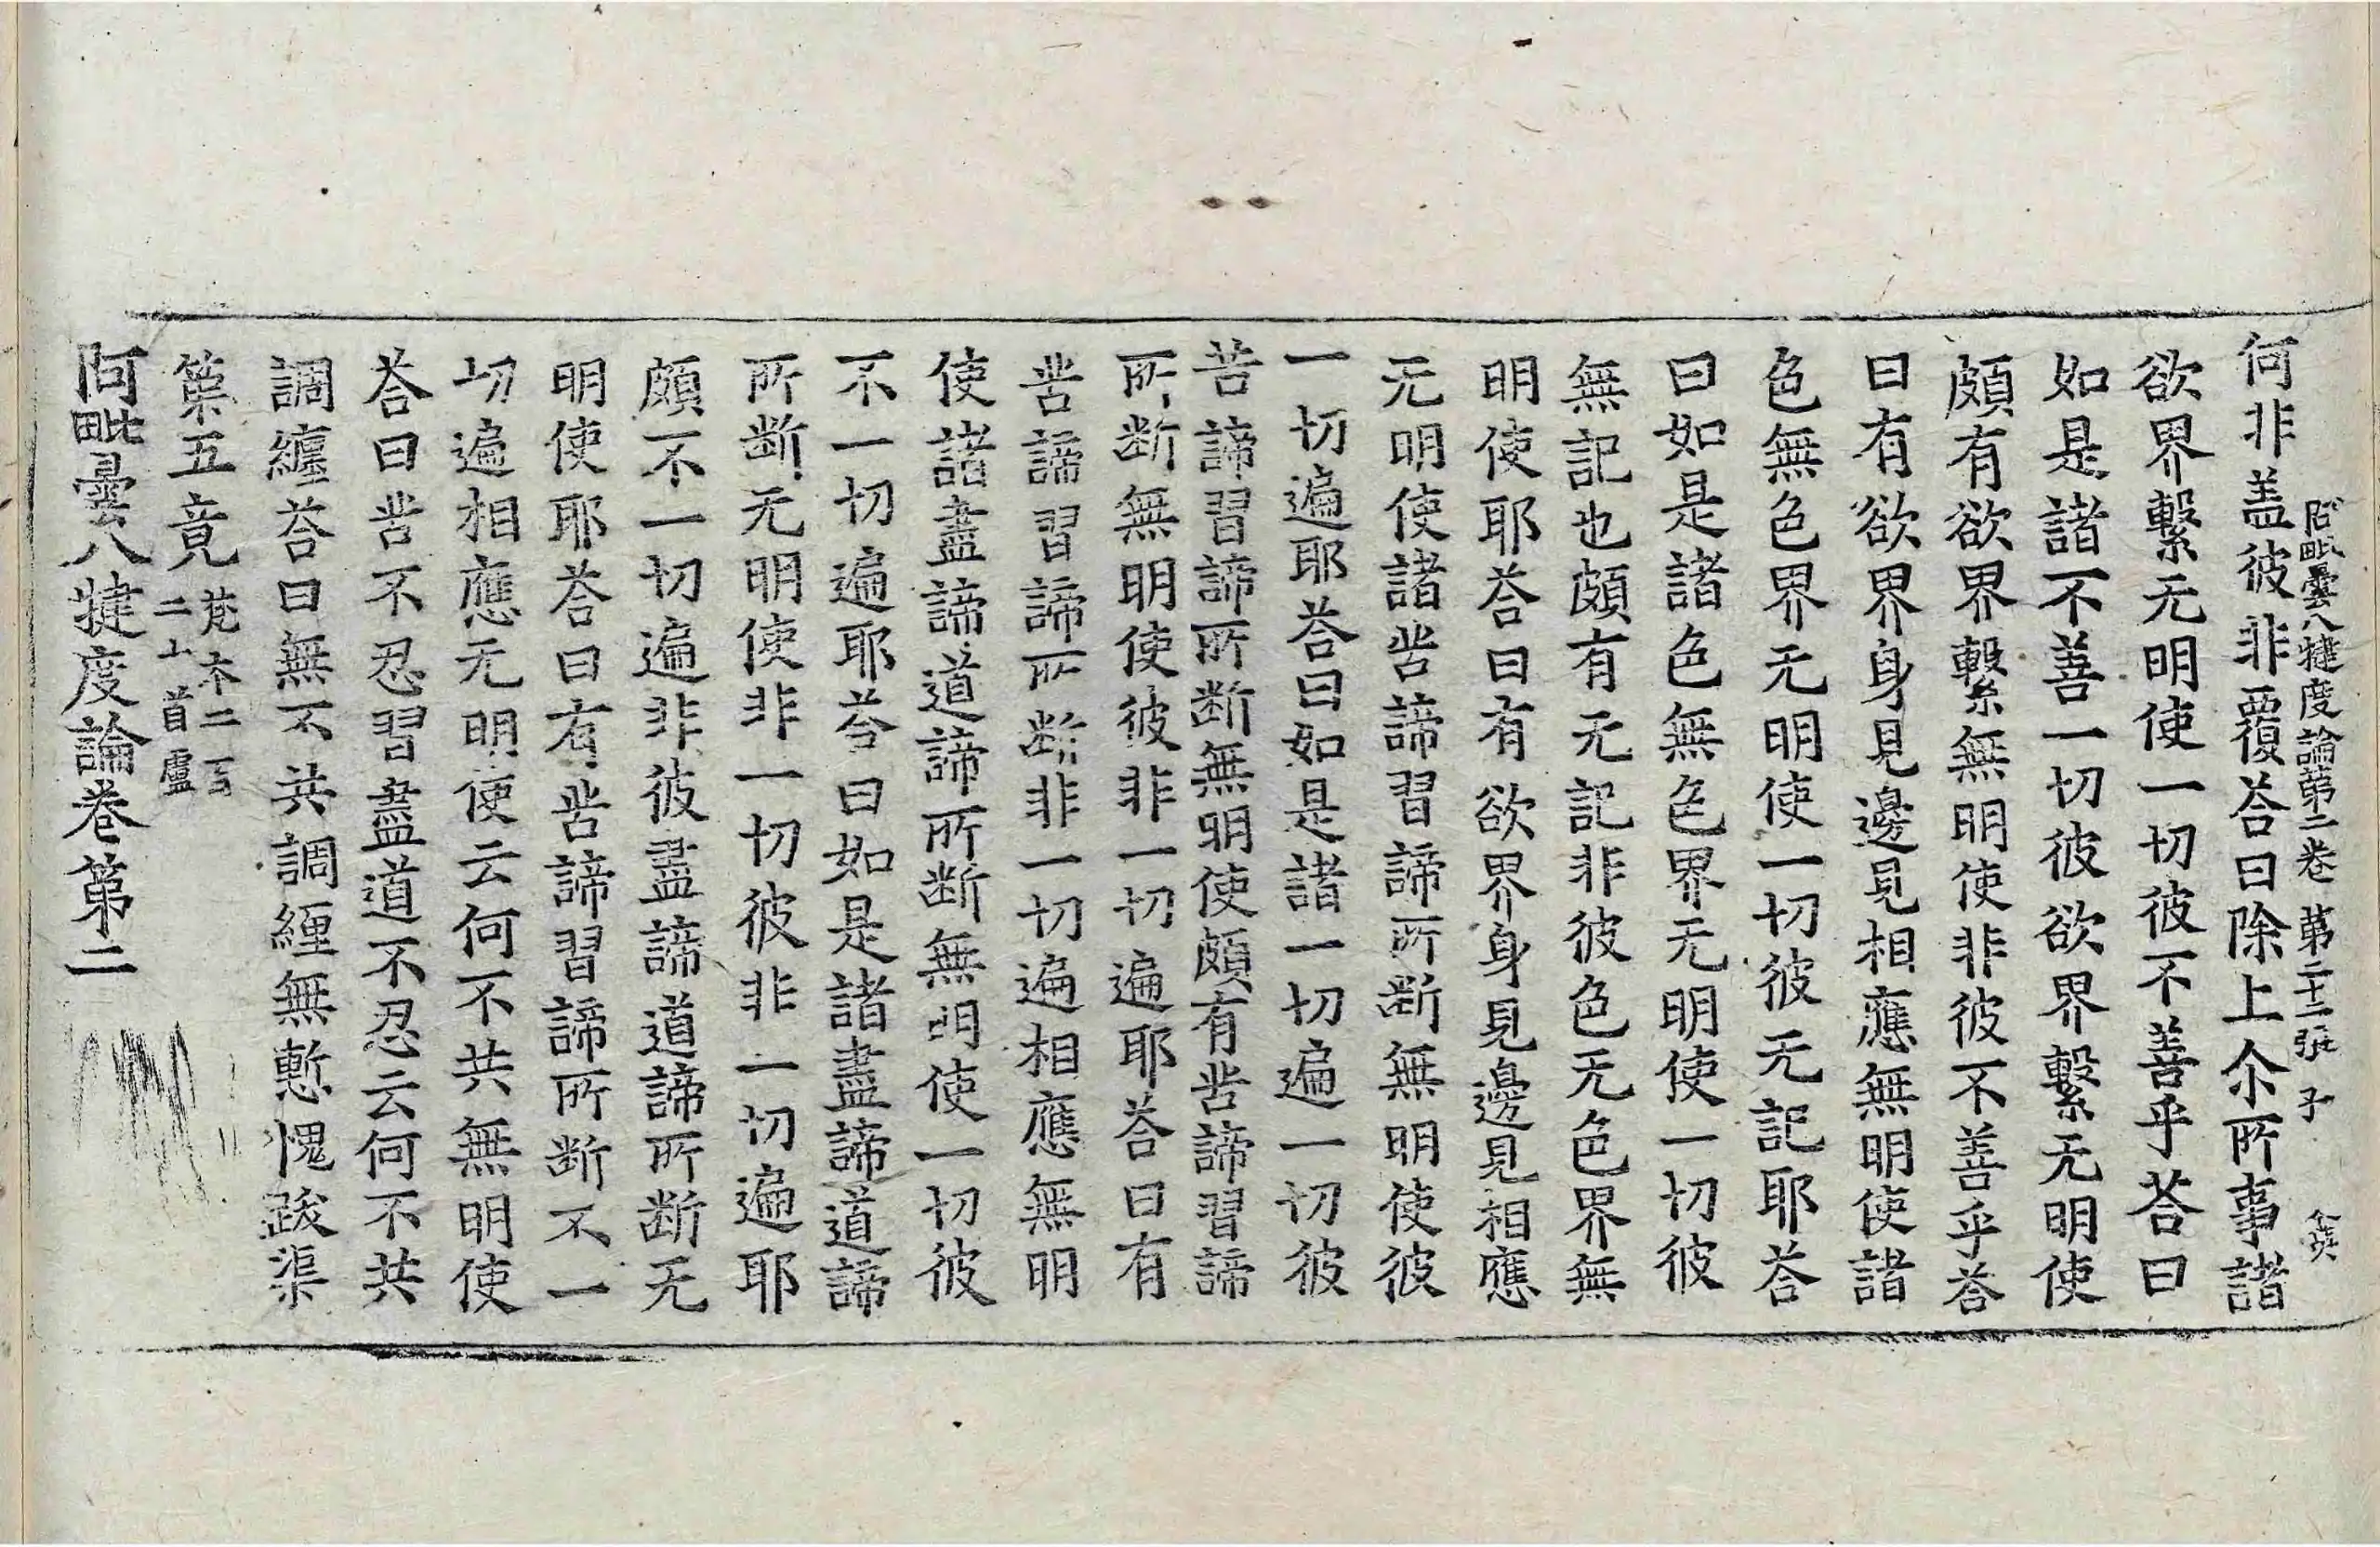 阿毗曇八犍度論第二卷 第二十二張 子
何非盖彼非覆荅曰除上尒所事諸
欲界繫无明使一切彼不善乎荅曰
如是諸不善一切彼欲界繫无明使
頗有欲界繫無明使非彼不善乎荅
曰有欲界身見邊見相應無明使諸
色無色界无明使一切彼无記耶荅
曰如是諸色無色界无明使一切彼
無記也頗有无記非彼色无色界無
明使耶荅曰有欲界身見邊見相應
无明使諸苦諦習諦所断無明使彼
一切遍耶荅曰如是諸一切遍一切彼
苦諦習諦所断無明使頗有苦諦習諦
所断無明使彼非一切遍耶荅曰有
苦諦習諦所断非一切遍相應無明
使諸盡諦道諦所断無明使一切彼
不一切遍耶荅曰如是諸盡諦道諦
所断无明使非一切彼非一切遍耶
頗不一切遍非彼盡諦道諦所断无
明使耶荅曰有苦諦習諦所断不一
切遍相應无明使云何不共無明使
荅曰苦不忍習盡道不忍云何不共
調纏荅曰無不共調纏無慙愧跋渠
第五竟 梵本二百
二十首盧
阿毗曇八犍度論卷第二